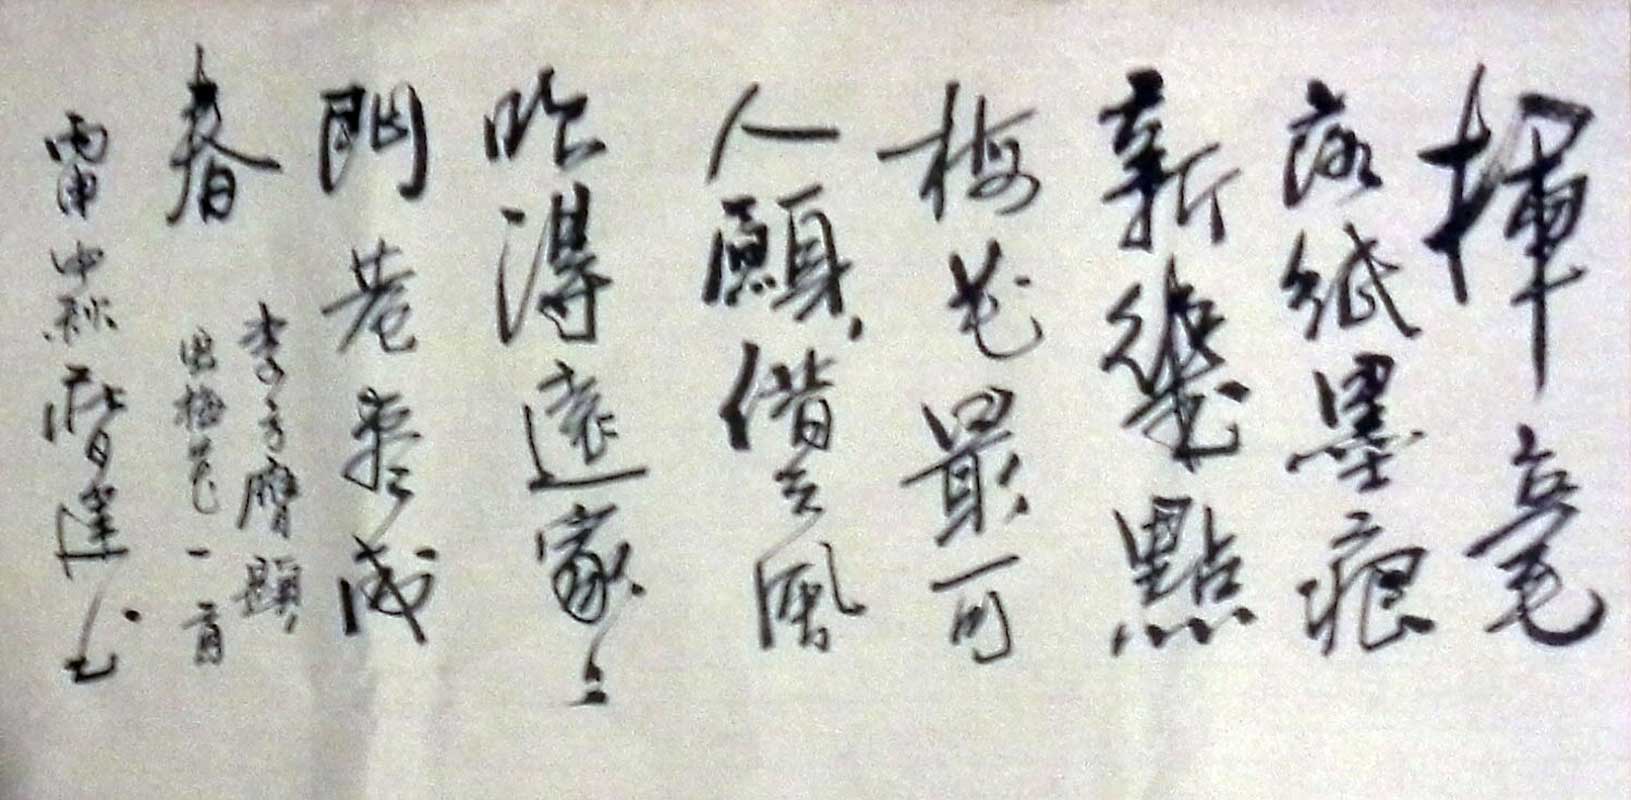 揮毫
落紙墨痕
新幾點
梅花最可
人願借天風
吹得遠家々
門巷盡成
春
李方膺題
畫梅花一首
丙申中秋 達书